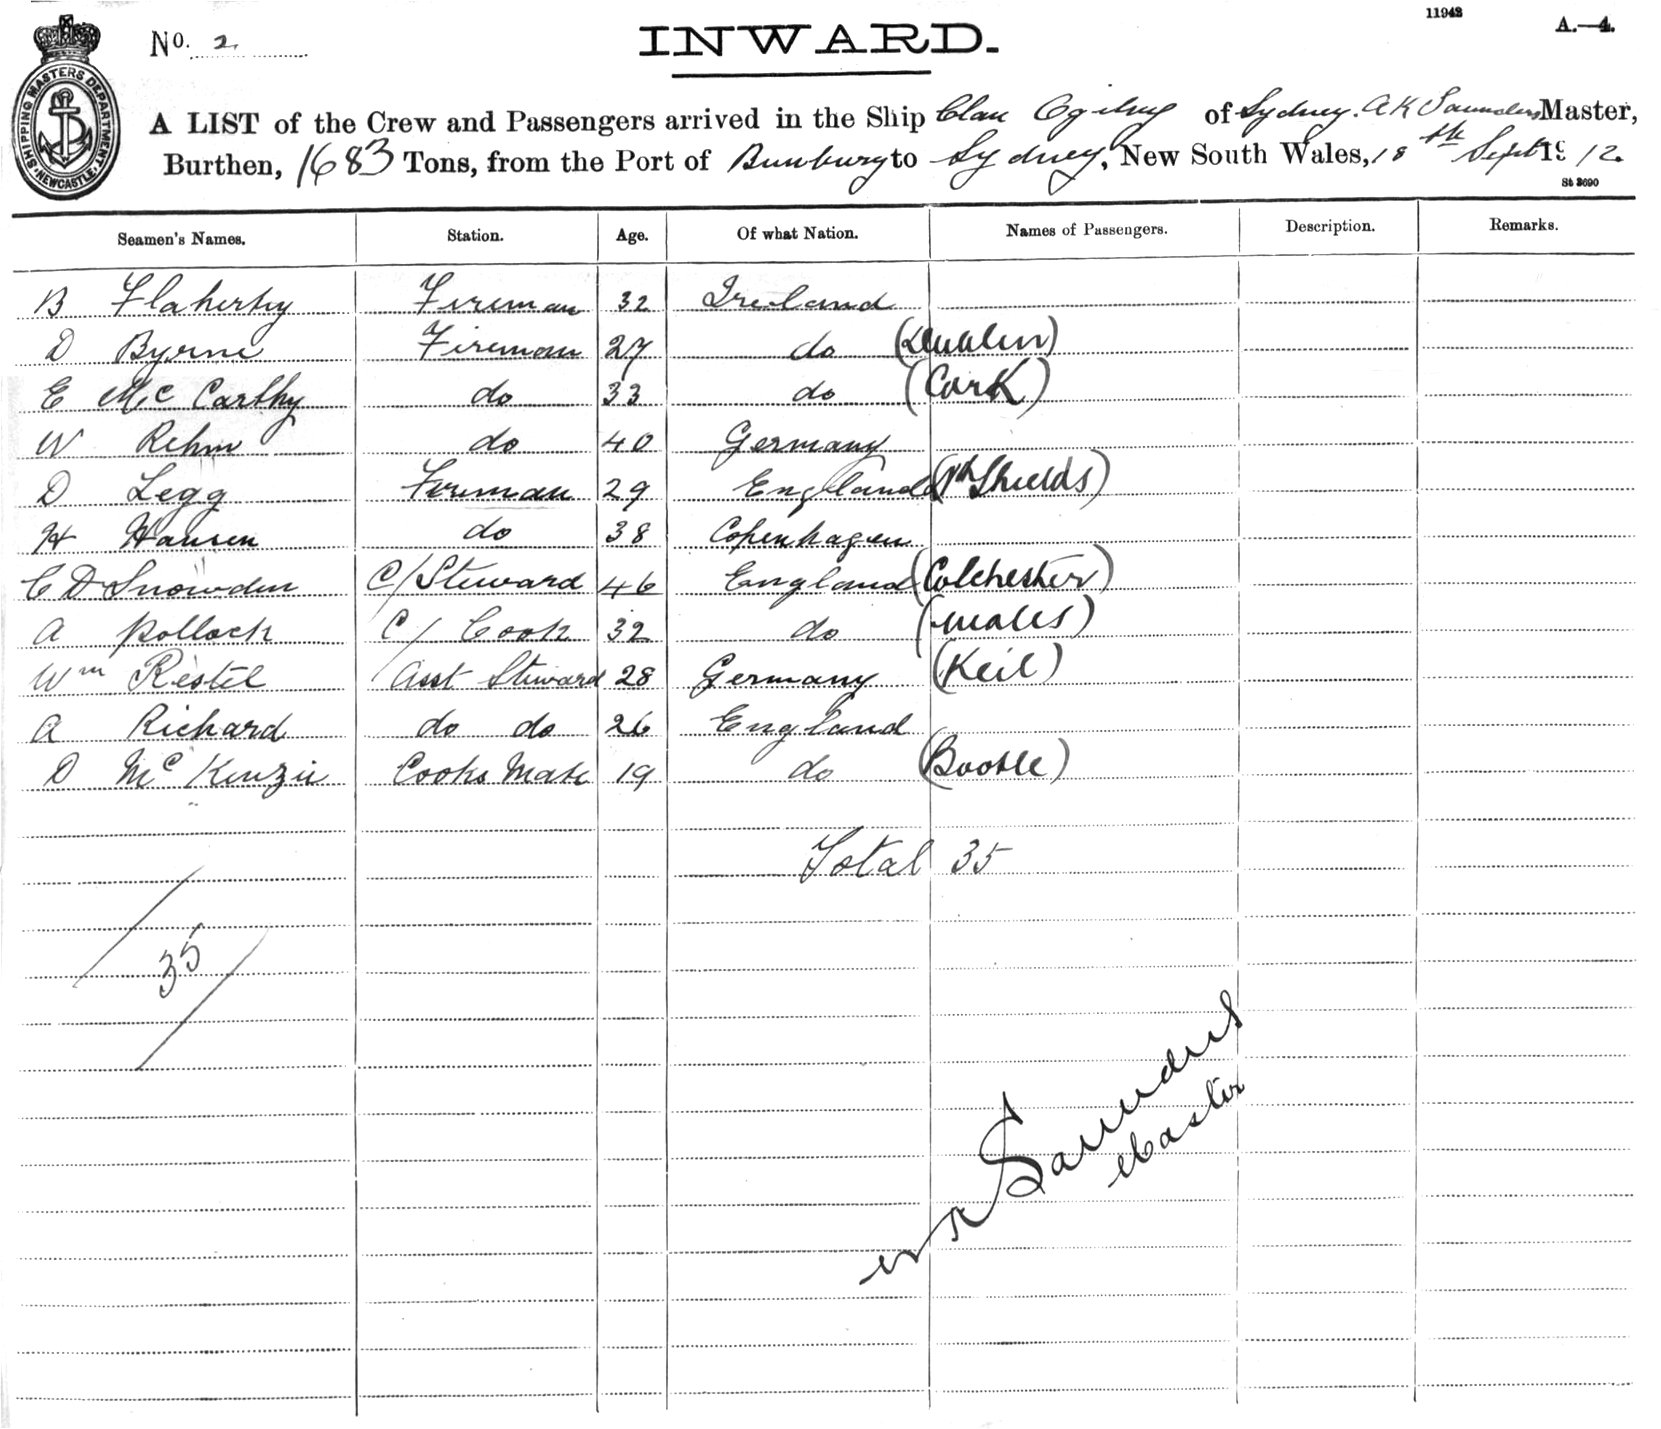 11942
A.—4.
No. 2
INWARD.
SHIPPING MASTERS DEPARTMENT NEWCASTLE
A LIST of the Crew and Passengers arrived in the Ship Clan Ogilvy of Sydney. A K Saunders Master,
Burthen, 1683 Tons, from the Port of Bunbury to Sydney, New South Wales, 18th Sept 1912.
St 3690
Seamen's Names. Station. Age. Of what Nation. Names of Passengers. Description. Remarks.
B Flaherty Fireman 32 Ireland
D Byrne Fireman 27 do (Dublin)
E McCarthy do 33 do (Cork)
W Rehm do 40 Germany
D Legg Fireman 29 England (Nh Shields)
H Hansen do 38 Copenhagen
C D Snowden C/Steward 46 England (Colchester)
A Pollock C/ Cook 32 do (Wales)
Wm Restel Asst Steward 28 Germany (Keil)
A Richard do do 26 England
D McKenzie Cooks Mate 19 do (Bootle)
Total 35
35
Saunders
Master